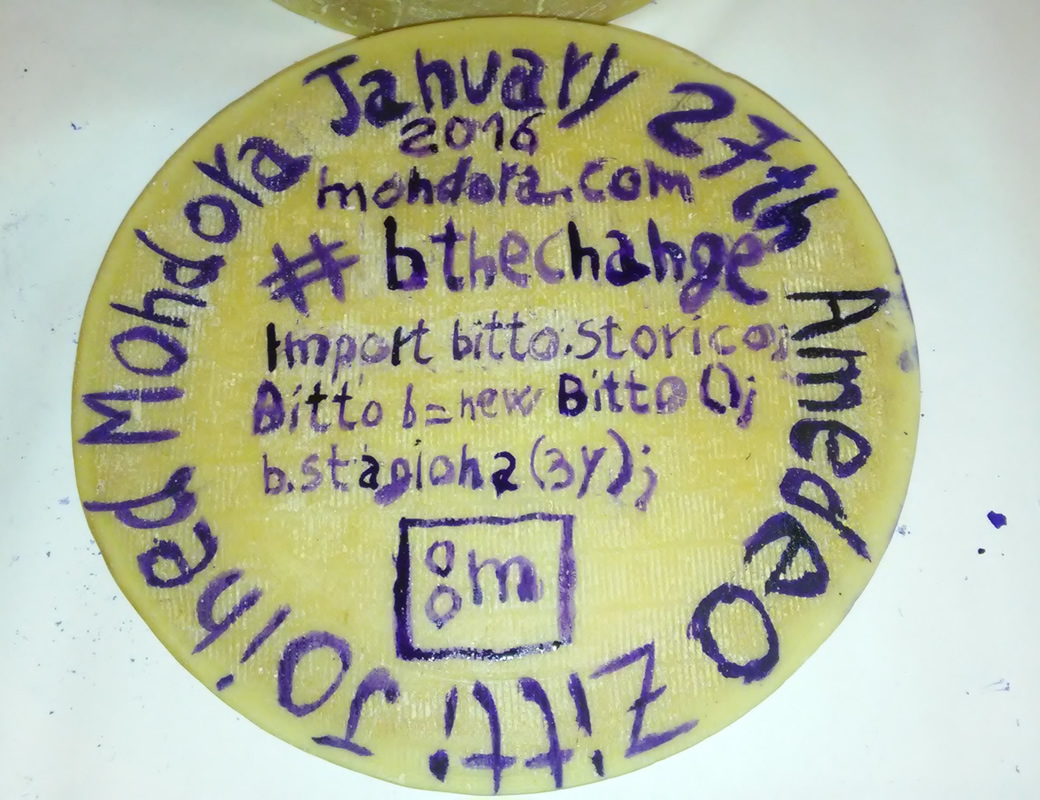 January 27th Amedeo Zitti Joined Mondora
2016
mondora.com
# bthechange
Import bitto.storico;
Bitto b=new Bitto ();
b.stagiona (3y);
8m